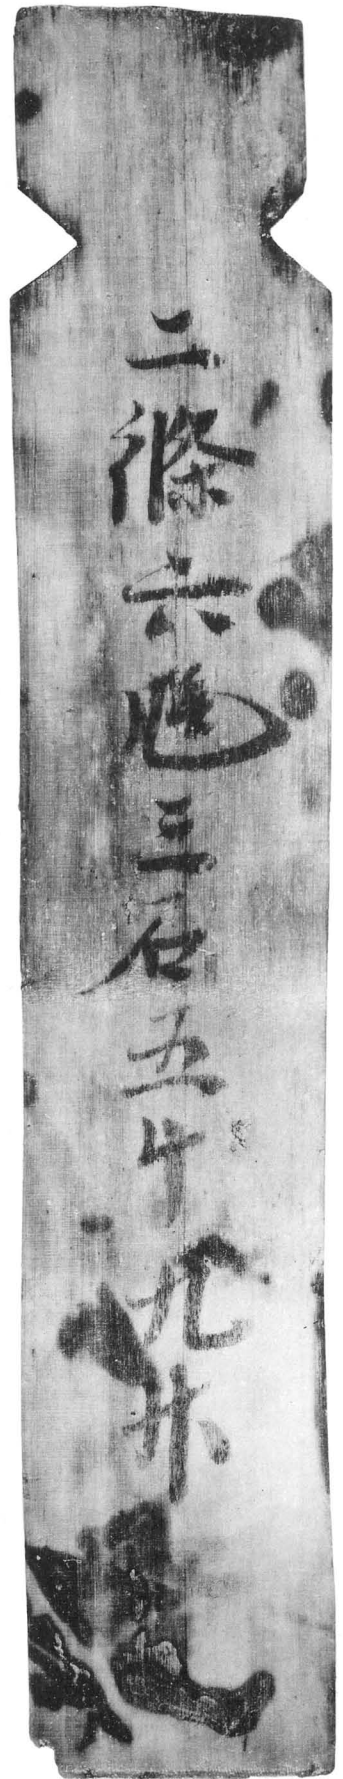 二條六瓺三石五斗九升